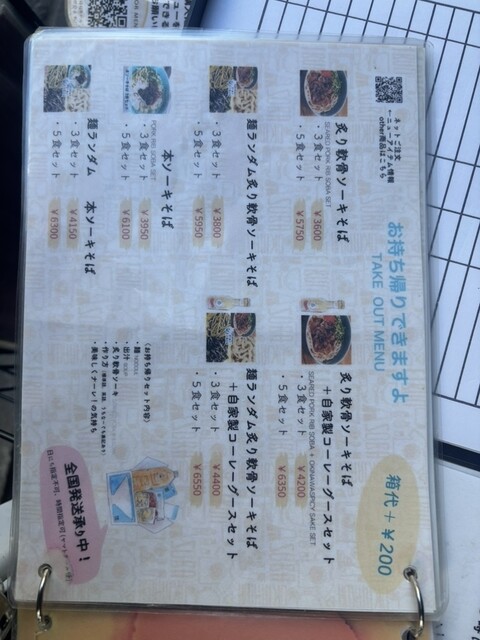 お持ち帰りできますよ
TAKE OUT MENU
箱代＋￥200
ネットご注文
ニューアイテム情報
other商品はこちら
炙り軟骨ソーキそば
SEARED PORK RIB SOBA SET
・３食セット ￥3600
・５食セット ￥5750
炙り軟骨ソーキそば
＋自家製コーレーグースセット
SEARED PORK RIB SOBA + OKINAWA SPICY SAKE SET
・３食セット ￥4200
・５食セット ￥6350
麺ランダム炙り軟骨ソーキそば
・３食セット ￥3800
・５食セット ￥5950
麺ランダム炙り軟骨ソーキそば
＋自家製コーレーグースセット
・３食セット ￥4400
・５食セット ￥6550
本ソーキそば
PORK RIB SOBA SET
・３食セット ￥3950
・５食セット ￥6100
麺ランダム 本ソーキそば
・３食セット ￥4150
・５食セット ￥6300
〈お持ち帰りセット内容〉
・麺 NOODLE
・出汁 SOUP
・炙り軟骨ソーキ
・作り方
・美味しくナーレ！の気持ち
全国発送承り中！